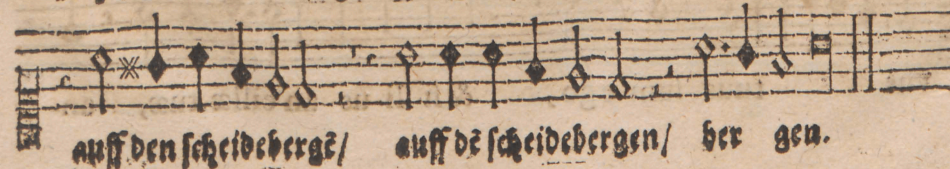 auff den ſcheidebergē/ auff dē ſcheidebergen/ ber gen.